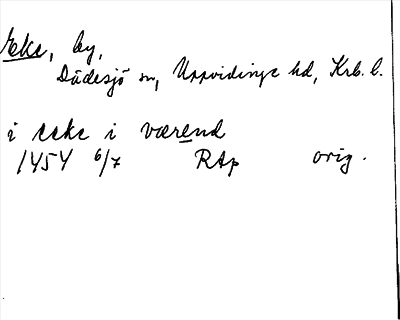 Eke, by,
Dädesjö sn, Uppvidinge hd, Krb. l.
i eeke i værend
1454 6/7 RAp orig.